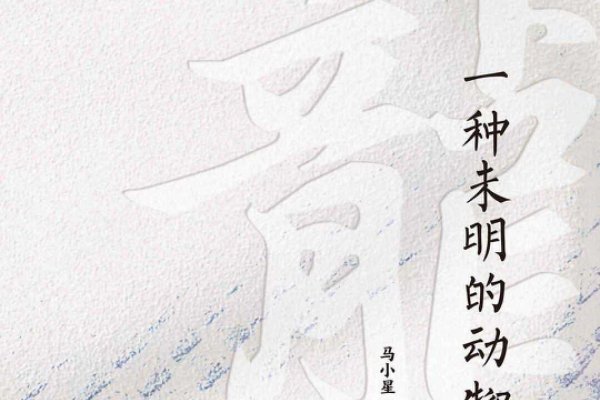 龍
一种未明的动物
马小星